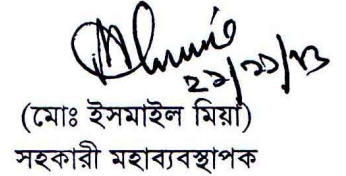 ২২/১১/২৩
(মোঃ ইসমাইল মিয়া)
সহকারী মহাব্যবস্থাপক